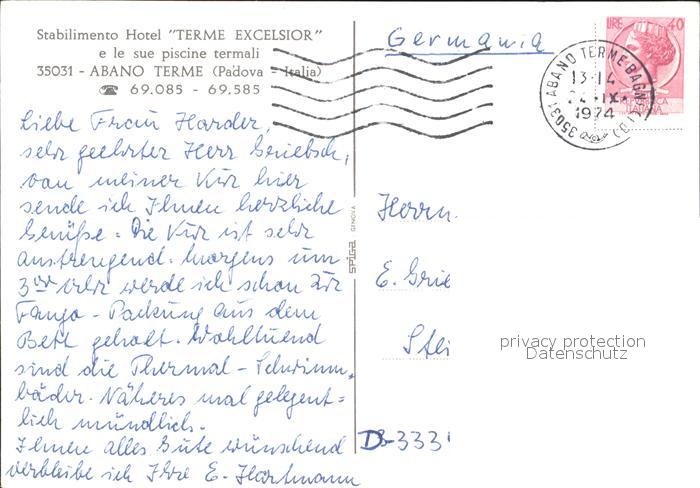 Stabilimento Hotel "TERME EXCELSIOR"
e le sue piscine termali
35031 - ABANO TERME (Padova - Italia)
☎ 69.085 - 69.585
Liebe Frau Harder,
sehr geehrter Herr Griebsch,
von meiner Kur hier
sende ich Ihnen herzliche
Grüße. Die Kur ist sehr
anstrengend. Morgens um
3 Uhr werde ich schon zur
Fango-Packung aus dem
Bett geholt. Wohltuend
sind die Thermal-Schwimm-
bäder. Näheres mal gelegent=
lich mündlich.
Ihnen alles Gute wünschend
verbleibe ich Ihre E. Hartmann
SPIGA GENOVA
Germania
LIRE 40
35031 ABANO TERME-BAGNI
13-14
24.IX.
1974
Herrn
E. Grie
Stei
D-333
privacy protection
Datenschutz